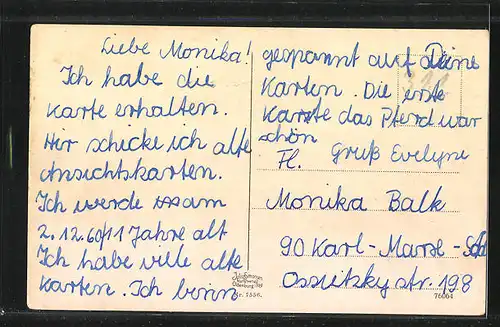 Liebe Monika!
Ich habe die
Karte erhalten.
Hir schicke ich alte
Ansichtskarten.
Ich werde am
2.12.60 11 Jahre alt
Ich habe viele alte
Karten. Ich binn
gespannt auf Deine
Karten. Die erste
Karte das Pferd war
schön
Fl. Gruß Evelyne
Monika Balk
90 Karl-Marx-Stdt
Ossietzky str. 198
Nr. 1556.
76064